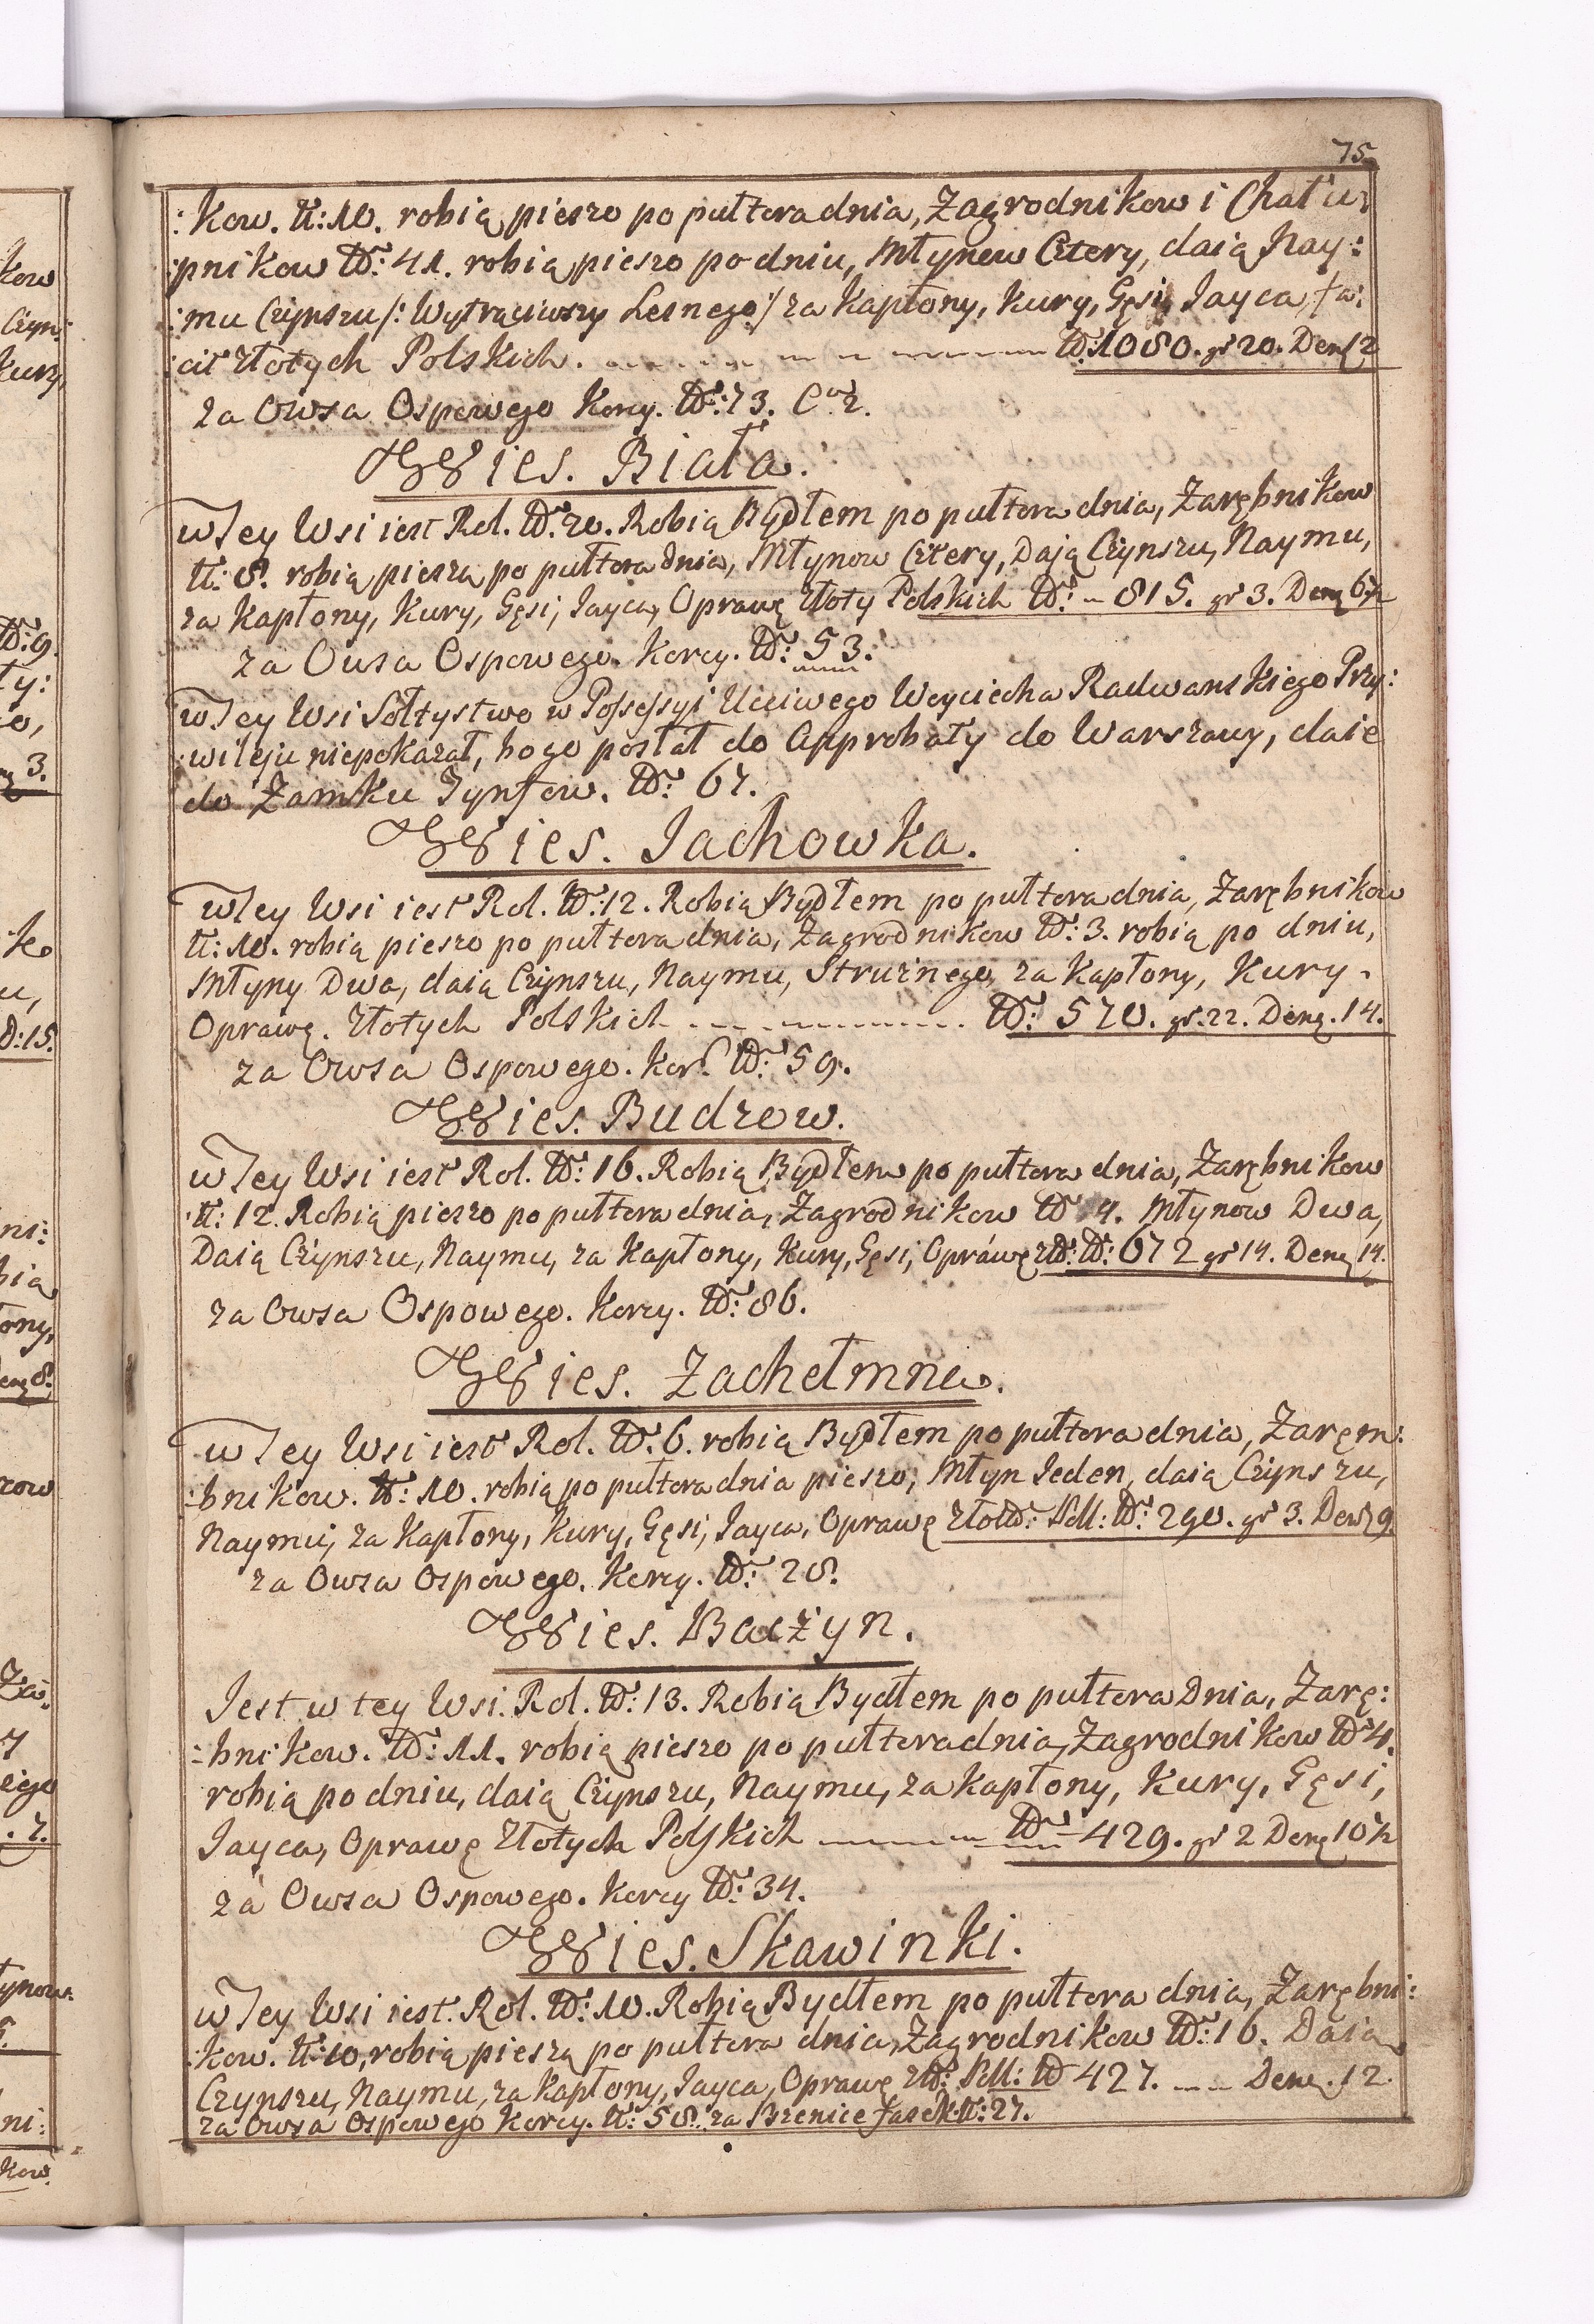 75
:kow. tt: 10. robią pieszo po pułtora dnia, Zagrodnikow i Chału:
:pnikow N° 41. robią pieszo po dniu, Młynow Cztery, daią Nay:
:mu Czynszu /: Wytrąciwszy Lesnego :/ za Kapłony, Kury, Gęsi, Jayca,
Złotych Polskich. N° 1080. gr 20. Den 2
za Owsa Ospowego Korcy. N°: 73. Ćw 2.
Wies. Biała.
w Tey Wsi iest Rol. N° 20. Robią Bydłem po pułtora dnia, Zarębnikow
tt: 8. robią pieszą po pułtora dnia, Młynow Cztery, Dają Czynszu, Naymu,
za Kapłony, Kury, Gęsi, Jayca, Oprawę Złoty Polskich N°: 815. gr 3. Deng 6½
za Owsa Ospowego. Korcy. N°: 53.
w Tey Wsi Sołtystwo w Possessyi Uciiwego Woyciecha Radwanskiego Przy:
:wileju niepokazał, bo go posłał do Approbaty do Warszawy, daie
do Zamku Tynfow. N°: 67.
Wies. Jachowka.
w Tey Wsi iest Rol. N°: 12. Robią Bydłem po pułtora dnia, Zarębnikow
tt: 10. robią pieszo po pułtora dnia, Zagrodnikow N°: 3. robią po dniu,
Młyny Dwa, daią Czynszu, Naymu, Strużnego, za Kapłony, Kury.
Oprawę. Złotych Polskich N°: 570. gr. 22. Deng. 14.
za Owsa Ospowego. Kor. N°: 59.
Wies. Budzow.
w Tey Wsi iest Rol. N°: 16. Robią Bydłem po pułtora dnia, Zarębnikow
tt: 12. Robią pieszo po pułtora dnia, Zagrodnikow N° 4. Młynow Dwa,
Daią Czynszu, Naymu, za Kapłony, Kury, Gęsi, Oprawę zł: N°: 672 gr 14. Deng 14.
za Owsa Ospowego. Korcy. N°: 86.
Wies. Zachełmna.
w Tey Wsi iest Rol. N°: 6. robią Bydłem po pułtora dnia, Zaręm:
:bnikow. tt: 10. robią po pułtora dnia pieszo, Młyn Jeden, daią Czynszu,
Naymu, za Kapłony, Kury, Gęsi, Jayca, Oprawę Złot: Poll: N°: 290. gr 3. Deng 9.
za Owsa Ospowego. Korcy. N°: 28.
Wies. Baczyn.
Jest w tey Wsi. Rol. N°: 13. Robią Bydłem po pułtora Dnia, Zarę:
:bnikow. N°: 11. robią pieszo po pułtora dnia, Zagrodnikow N° 4.
robią po dniu, daią Czynszu, Naymu, za Kapłony, Kury, Gęsi,
Jayca, Oprawę Złotych Polskich N° 429. gr 2 Deng 10½
za Owsa Ospowego. Korcy N°: 34.
Wies. Skawinki.
w Tey Wsi iest. Rol. N°: 10. Robią Bydłem po pułtora dnia, Zarębni:
:kow. tt: 10, robią pieszą po pułtora dnia, Zagrodnikow N°: 16. Daią
Czynszu, Naymu, za Kapłony, Jayca, Oprawę zł: Poll: N° 427. Deng. 12.
za Owsa Ospowego Korcy. tt: 58. za Bzenice Jasek tt: 27.